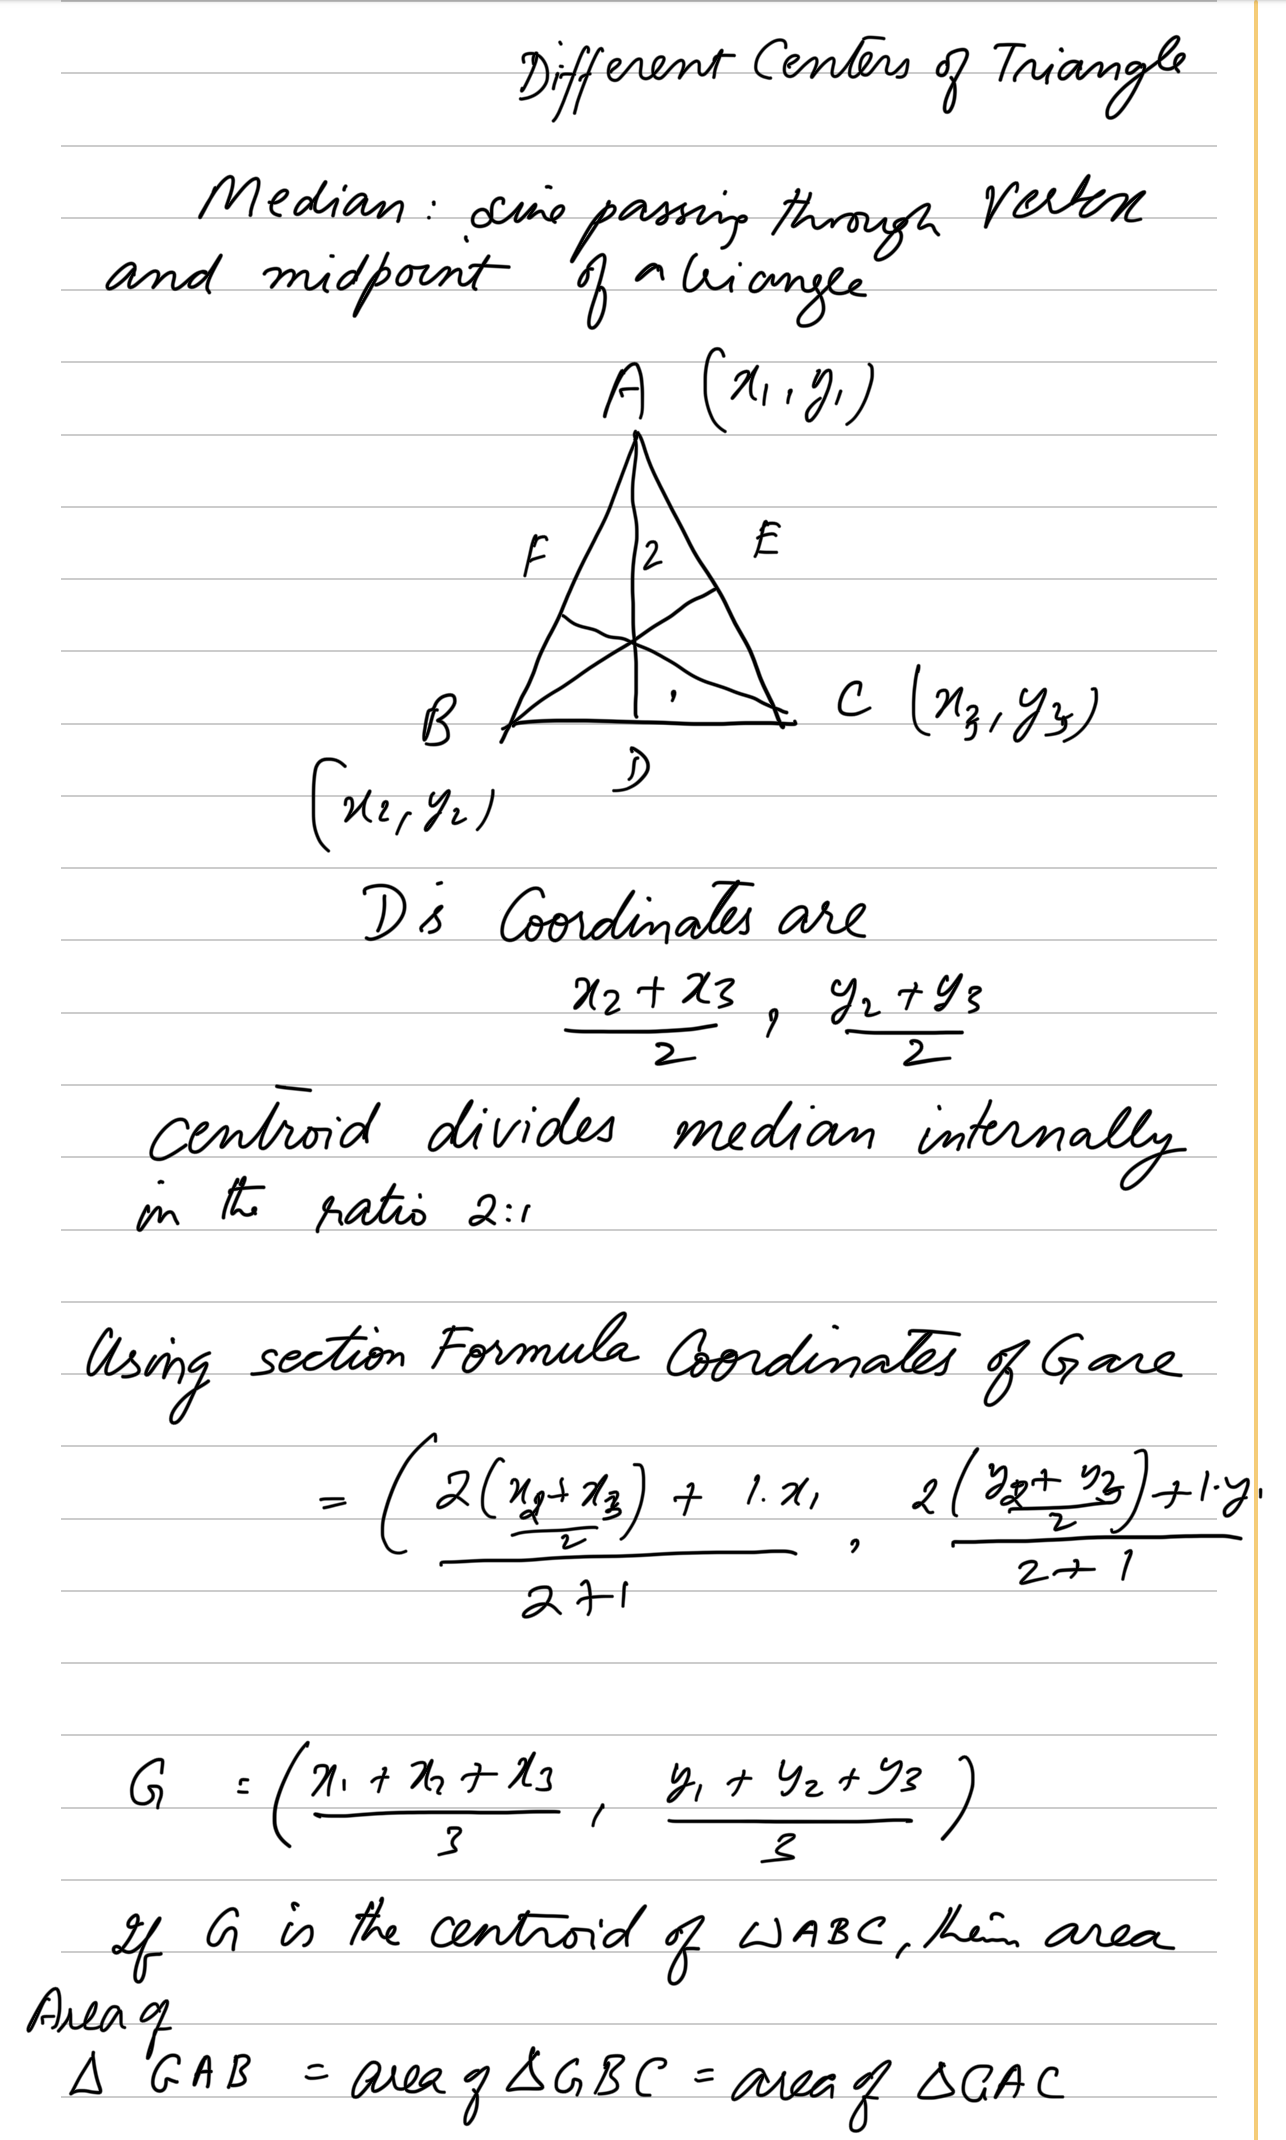 Different Centers of Triangle
Median: Line passing through Vertex
and midpoint of a triangle
A (x₁, y₁)
F 2 E
B C (x₃, y₃)
D
(x₂, y₂)
D's Coordinates are
x₂ + x₃ / 2 , y₂ + y₃ / 2
centroid divides median internally
in the ratio 2:1
Using section Formula Coordinates of G are
= ( 2(x₂+x₃ / 2) + 1.x₁ / 2+1 , 2(y₂+y₃ / 2)+1.y₁ / 2+1
G = ( x₁ + x₂ + x₃ / 3 , y₁ + y₂ + y₃ / 3 )
If G is the centroid of ΔABC, then area
Area of
Δ GAB = area of ΔGBC = area of ΔGAC